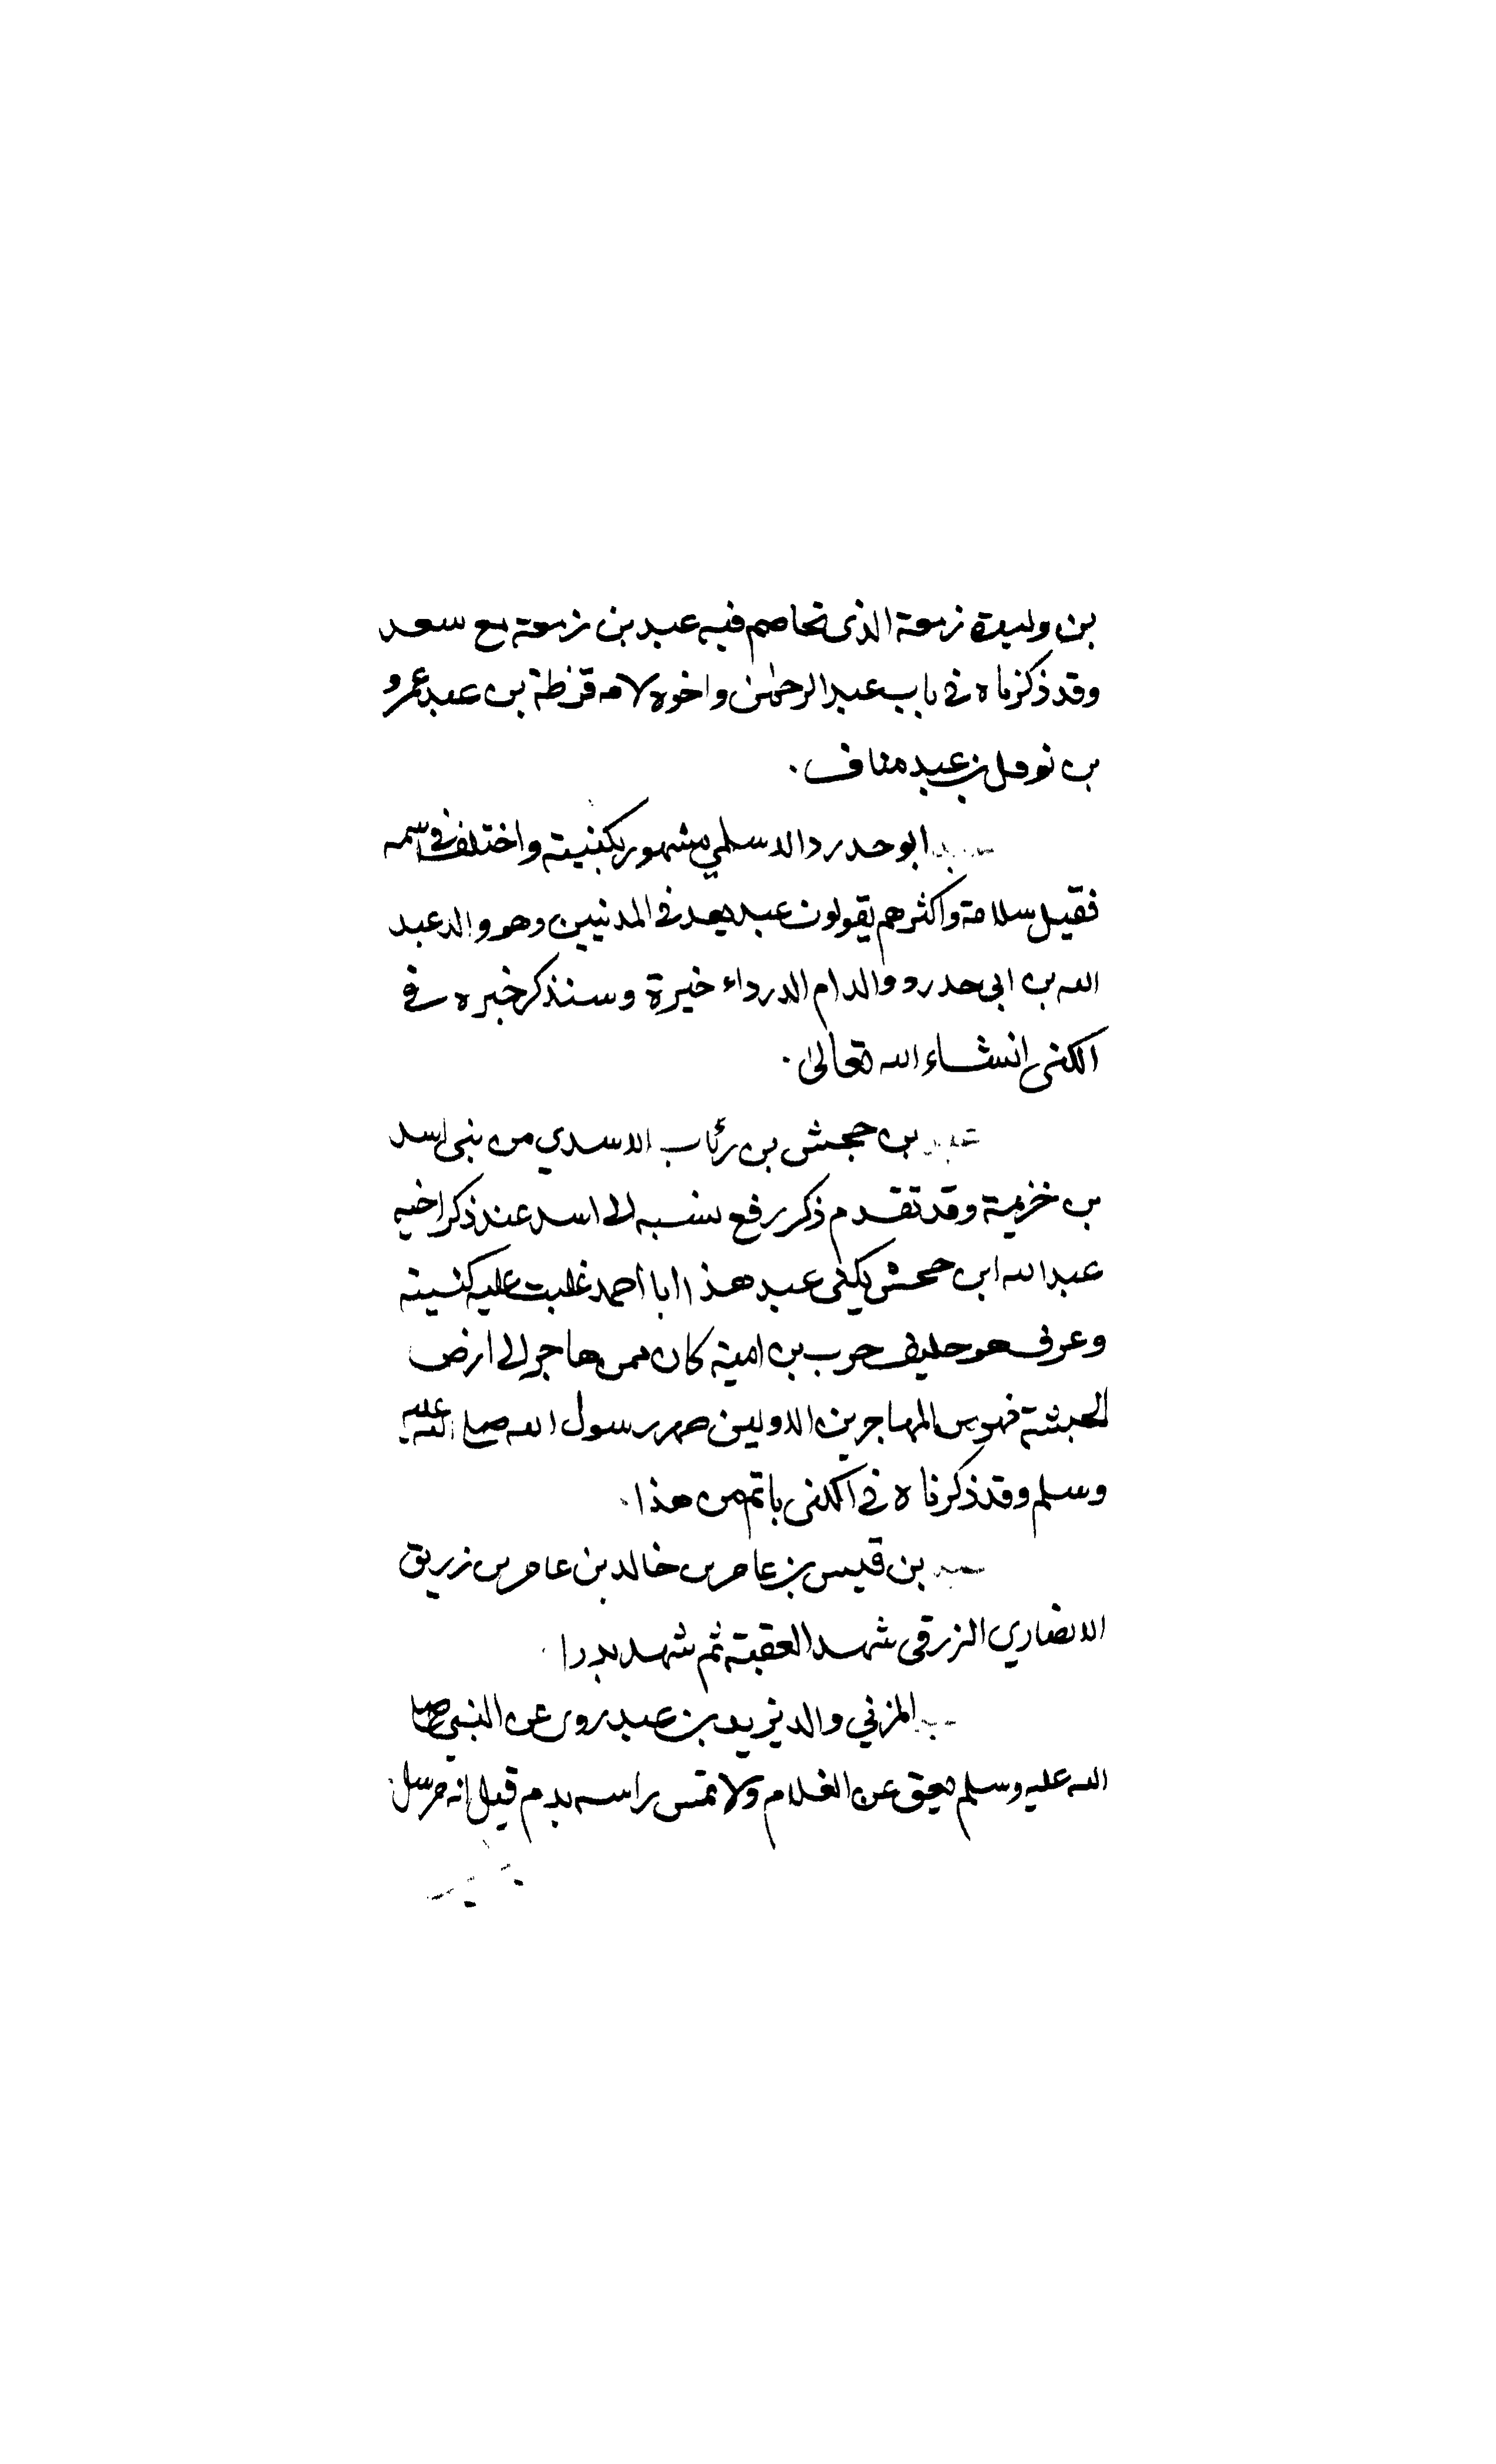 بن وليدة زمعة الذى تخاصم فيه عبد بن زمعة مع سعد
وقد ذكرناه فى باب عبد الرحمٰن واخوه لامه قرظة بن عبد عمرو
بن نوفل بن عبد مناف .
عبد ابو حدرد الاسلمي مشهور بكنيته واختلف فى اسمه
فقيل سلامة واكثرهم يقولون عبد يعد فى المدنيين وهو والد عبد
الله بن ابى حدرد ووالد ام الدرداء خيرة وسنذكر خبره فى
الكنى انشاء الله تعالى .
عبد بن جحش بن رئاب الاسدي من بنى اسد
بن خزيمة وقد تقدم ذكر رفع نسبه الى اسد عند ذكر اخيه
عبد الله ابن جحش يكنى عبد هذا ابا احمد غلبت عليه كنيته
وعرف هو حليف حرب بن امية كان ممن هاجر الى ارض
الحبشة فهو من المهاجرين الاولين صهر رسول الله صلى الله عليه
وسلم وقد ذكرناه فى الكنى باتم من هذا .
عبد بن قيس بن عامر بن خالد بن عامر بن زريق
الانصاري الزرقى شهد العقبة ثم شهد بدرا .
عبد المزني والد يزيد بن عبد روى عن النبي صلى
الله عليه وسلم يعق عن الغلام ولا تمس راسه بدم قيل انه مرسل